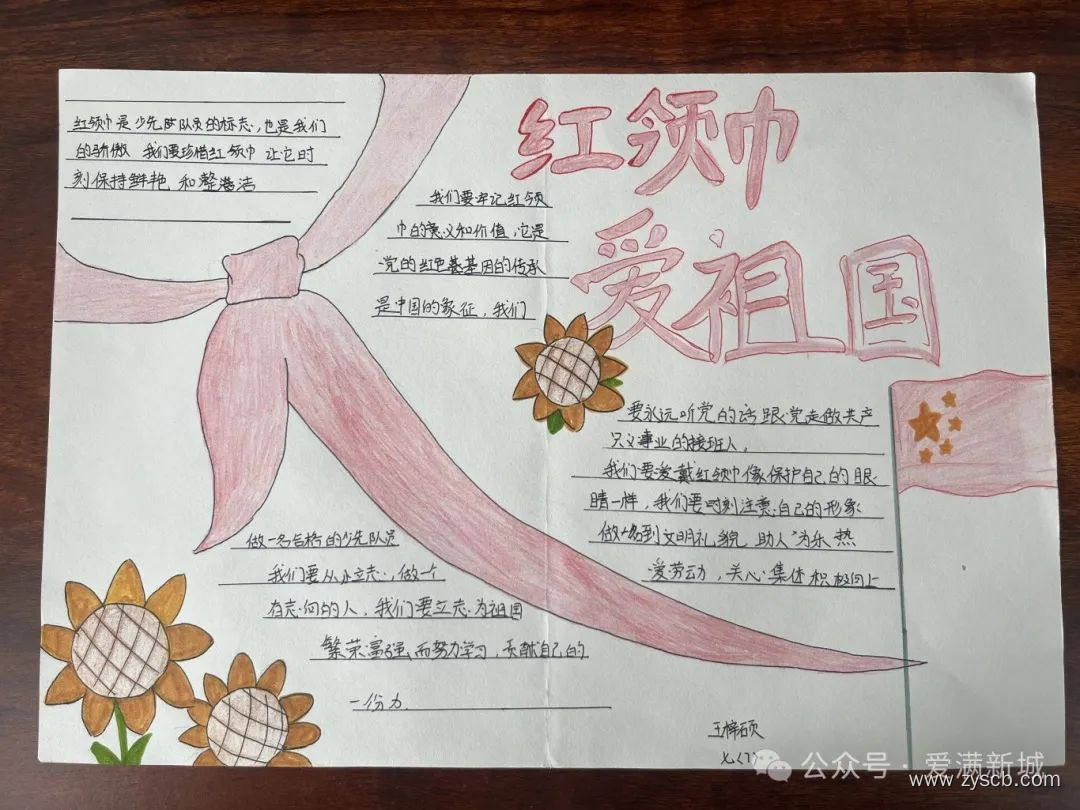 红领巾
爱祖国
红领巾是少先队队员的标志,也是我们
的骄傲 我们要珍惜红领巾 让它时
刻保持鲜艳 和整洁
我们要牢记红领
巾的意义和价值,它是
党的红色基因的传承
是中国的象征,我们
要永远听党的话跟党走做共产
只义事业的接班人,
我们要爱戴红领巾像保护自己的眼
睛一样,我们要时刻注意自己的形象
做到文明礼貌 助人为乐 热
爱劳动,关心集体积极向上
做一名合格的少先队员
我们要从小立志,做一个
有志向的人,我们要立志为祖国
繁荣富强而努力学习,贡献自己的
一份力
王梓硕
七(7)
公众号·爱满新城
www.zyscb.com